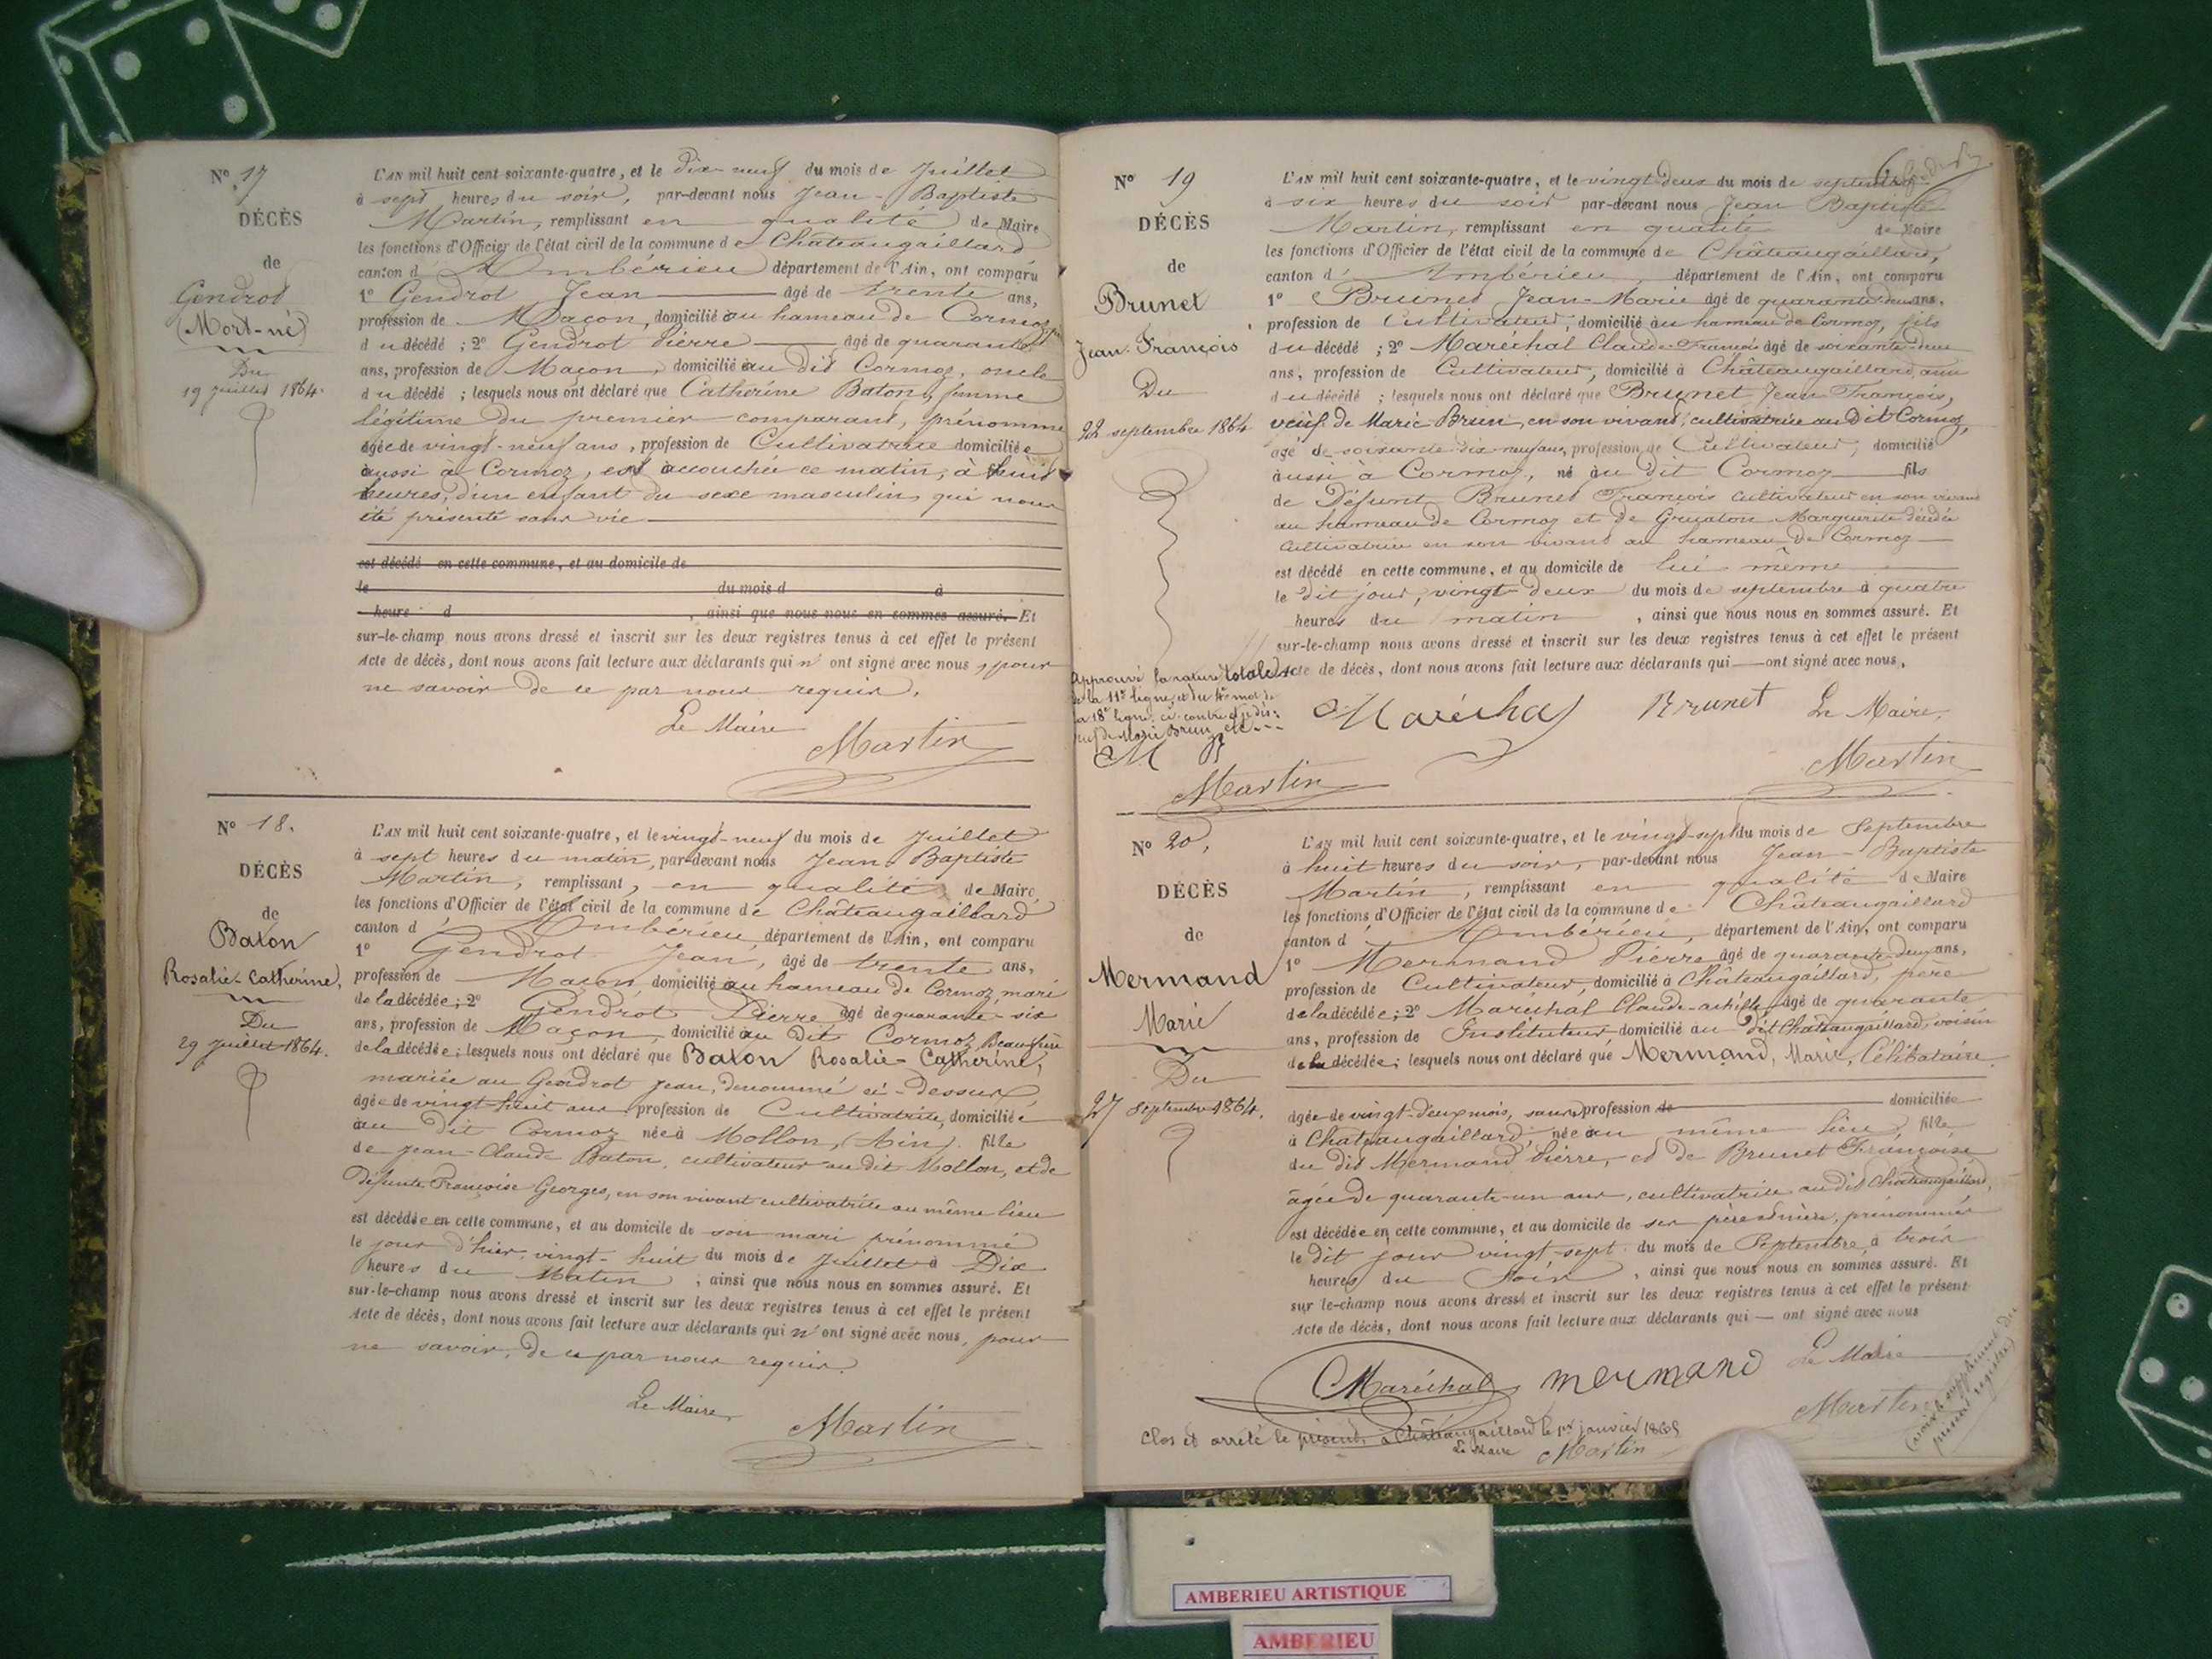 N° 17
DÉCÈS
de
Gendrot
(Mort-né)
Du
19 juillet 1864.
L'AN mil huit cent soixante-quatre, et le dix-neuf du mois de Juillet
à sept heures du soir, par-devant nous Jean-Baptiste
Martin, remplissant en qualité de Maire
les fonctions d'Officier de l'état civil de la commune de Châteaugaillard
canton d'Ambérieu département de l'Ain, ont comparu
1° Gendrot Jean âgé de trente ans,
profession de Maçon, domicilié au hameau de Cormoz,
du décédé ; 2° Gendrot Pierre âgé de quarante
ans, profession de Maçon, domicilié au dit Cormoz, oncle
du décédé ; lesquels nous ont déclaré que Catherine Baton, femme
légitime du premier comparant, prénommé
âgée de vingt-neuf ans, profession de Cultivatrice domiciliée
aussi à Cormoz, est accouchée ce matin, à huit
heures, d'un enfant du sexe masculin, qui nous
été présenté sans vie
est décédé en cette commune, et au domicile de
le du mois d à
heure d , ainsi que nous nous en sommes assuré. Et
sur-le-champ nous avons dressé et inscrit sur les deux registres tenus à cet effet le présent
Acte de décès, dont nous avons fait lecture aux déclarants qui n'ont signé avec nous, pour
ne savoir de ce par nous requis.
Le Maire
Martin
N° 18.
DÉCÈS
de
Baton
Rosalie-Catherine,
Du
29 juillet 1864.
L'AN mil huit cent soixante-quatre, et le vingt-neuf du mois de Juillet
à sept heures du matin, par-devant nous Jean-Baptiste
Martin, remplissant, en qualité de Maire,
les fonctions d'Officier de l'état civil de la commune de Châteaugaillard
canton d'Ambérieu département de l'Ain, ont comparu
1° Gendrot Jean, âgé de trente ans,
profession de Maçon, domicilié au hameau de Cormoz, mari
de la décédée ; 2° Gendrot Pierre âgé de quarante-six
ans, profession de Maçon, domicilié au dit Cormoz, Beau-frère
de la décédée ; lesquels nous ont déclaré que Baton Rosalie-Catherine,
mariée au Gendrot Jean, dénommé ci-dessus,
âgée de vingt-huit ans profession de Cultivatrice, domiciliée
au dit Cormoz née à Mollon, (Ain). fille
de Jean-Claude Baton, cultivateur au dit Mollon, et de
Défunte Françoise Georges, en son vivant cultivatrice au même lieu
est décédée en cette commune, et au domicile de son mari prénommé
le jour d'hier, vingt-huit du mois de Juillet à Dix
heures du Matin, ainsi que nous nous en sommes assuré. Et
sur-le-champ nous avons dressé et inscrit sur les deux registres tenus à cet effet le présent
Acte de décès, dont nous avons fait lecture aux déclarants qui n'ont signé avec nous, pour
ne savoir, de ce par nous requis.
Le Maire,
Martin
N° 19
DÉCÈS
de
Brunet
Jean-François
Du
22 septembre 1864
L'AN mil huit cent soixante-quatre, et le vingt-deux du mois de septembre
à six heures du soir par-devant nous Jean Baptiste
Martin, remplissant en qualité de Maire
les fonctions d'Officier de l'état civil de la commune de Châteaugaillard,
canton d'Ambérieu, département de l'Ain, ont comparu
1° Brunet Jean-Marie âgé de quarante-deux ans,
profession de Cultivateur, domicilié au hameau de Cormoz, fils
du décédé ; 2° Maréchal Claude-François âgé de soixante-deux
ans, profession de Cultivateur, domicilié à Châteaugaillard, ami
du décédé ; lesquels nous ont déclaré que Brunet Jean François,
veuf de Marie Brun, en son vivant, cultivatrice au Dit Cormoz,
âgé de soixante dix-neuf ans, profession de Cultivateur, domicilié
aussi à Cormoz, né au dit Cormoz fils
de Défunt Brunet François cultivateur en son vivant
au hameau de Cormoz et de Gruaton Marguerite décédée
cultivatrice en son vivant au hameau de Cormoz
est décédé en cette commune, et au domicile de lui même
le dit jour, vingt-deux du mois de septembre à quatre
heures du matin, ainsi que nous nous en sommes assuré. Et
sur-le-champ nous avons dressé et inscrit sur les deux registres tenus à cet effet le présent
Acte de décès, dont nous avons fait lecture aux déclarants qui ont signé avec nous,
Approuvé la rature totale
de la 11e ligne, et du 4e mot de
la 18e ligne, ci-contre
veuf de Marie Brun, etc
M B
Martin
Maréchal Brunet Le Maire,
Martin
N° 20,
DÉCÈS
de
Mermand
Marie
Du
27 Septembre 1864.
L'AN mil huit cent soixante-quatre, et le vingt-sept du mois de Septembre
à huit heures du soir, par-devant nous Jean-Baptiste
Martin, remplissant en qualité de Maire
les fonctions d'Officier de l'état civil de la commune de Châteaugaillard
canton d'Ambérieu, département de l'Ain, ont comparu
1° Mermand Pierre âgé de quarante-deux ans,
profession de Cultivateur, domicilié à Châteaugaillard, père
de la décédée ; 2° Maréchal Claude- âgé de quarante
ans, profession de Instituteur domicilié au dit Châteaugaillard, voisin
de la décédée ; lesquels nous ont déclaré que Mermand, Marie, Célibataire
âgée de vingt-deux mois, sans profession de domiciliée
à Chateaugaillard, née au même lieu, fille
du dit Mermand Pierre, et de Brunet Françoise
âgée de quarante-un ans, cultivatrice au dit Châteaugaillard,
est décédée en cette commune, et au domicile de ses père et mère, prénommés
le dit jour vingt-sept du mois de Septembre à trois
heures du soir, ainsi que nous nous en sommes assuré. Et
sur le-champ nous avons dressé et inscrit sur les deux registres tenus à cet effet le présent
Acte de décès, dont nous avons fait lecture aux déclarants qui — ont signé avec nous
Maréchal mermand Le Maire
Martin
Clos et arrêté le présent, à Châteaugaillard le 1er janvier 1865
Le Maire Martin
(voir le supplément du
présent registre)
AMBERIEU ARTISTIQUE
AMBERIEU